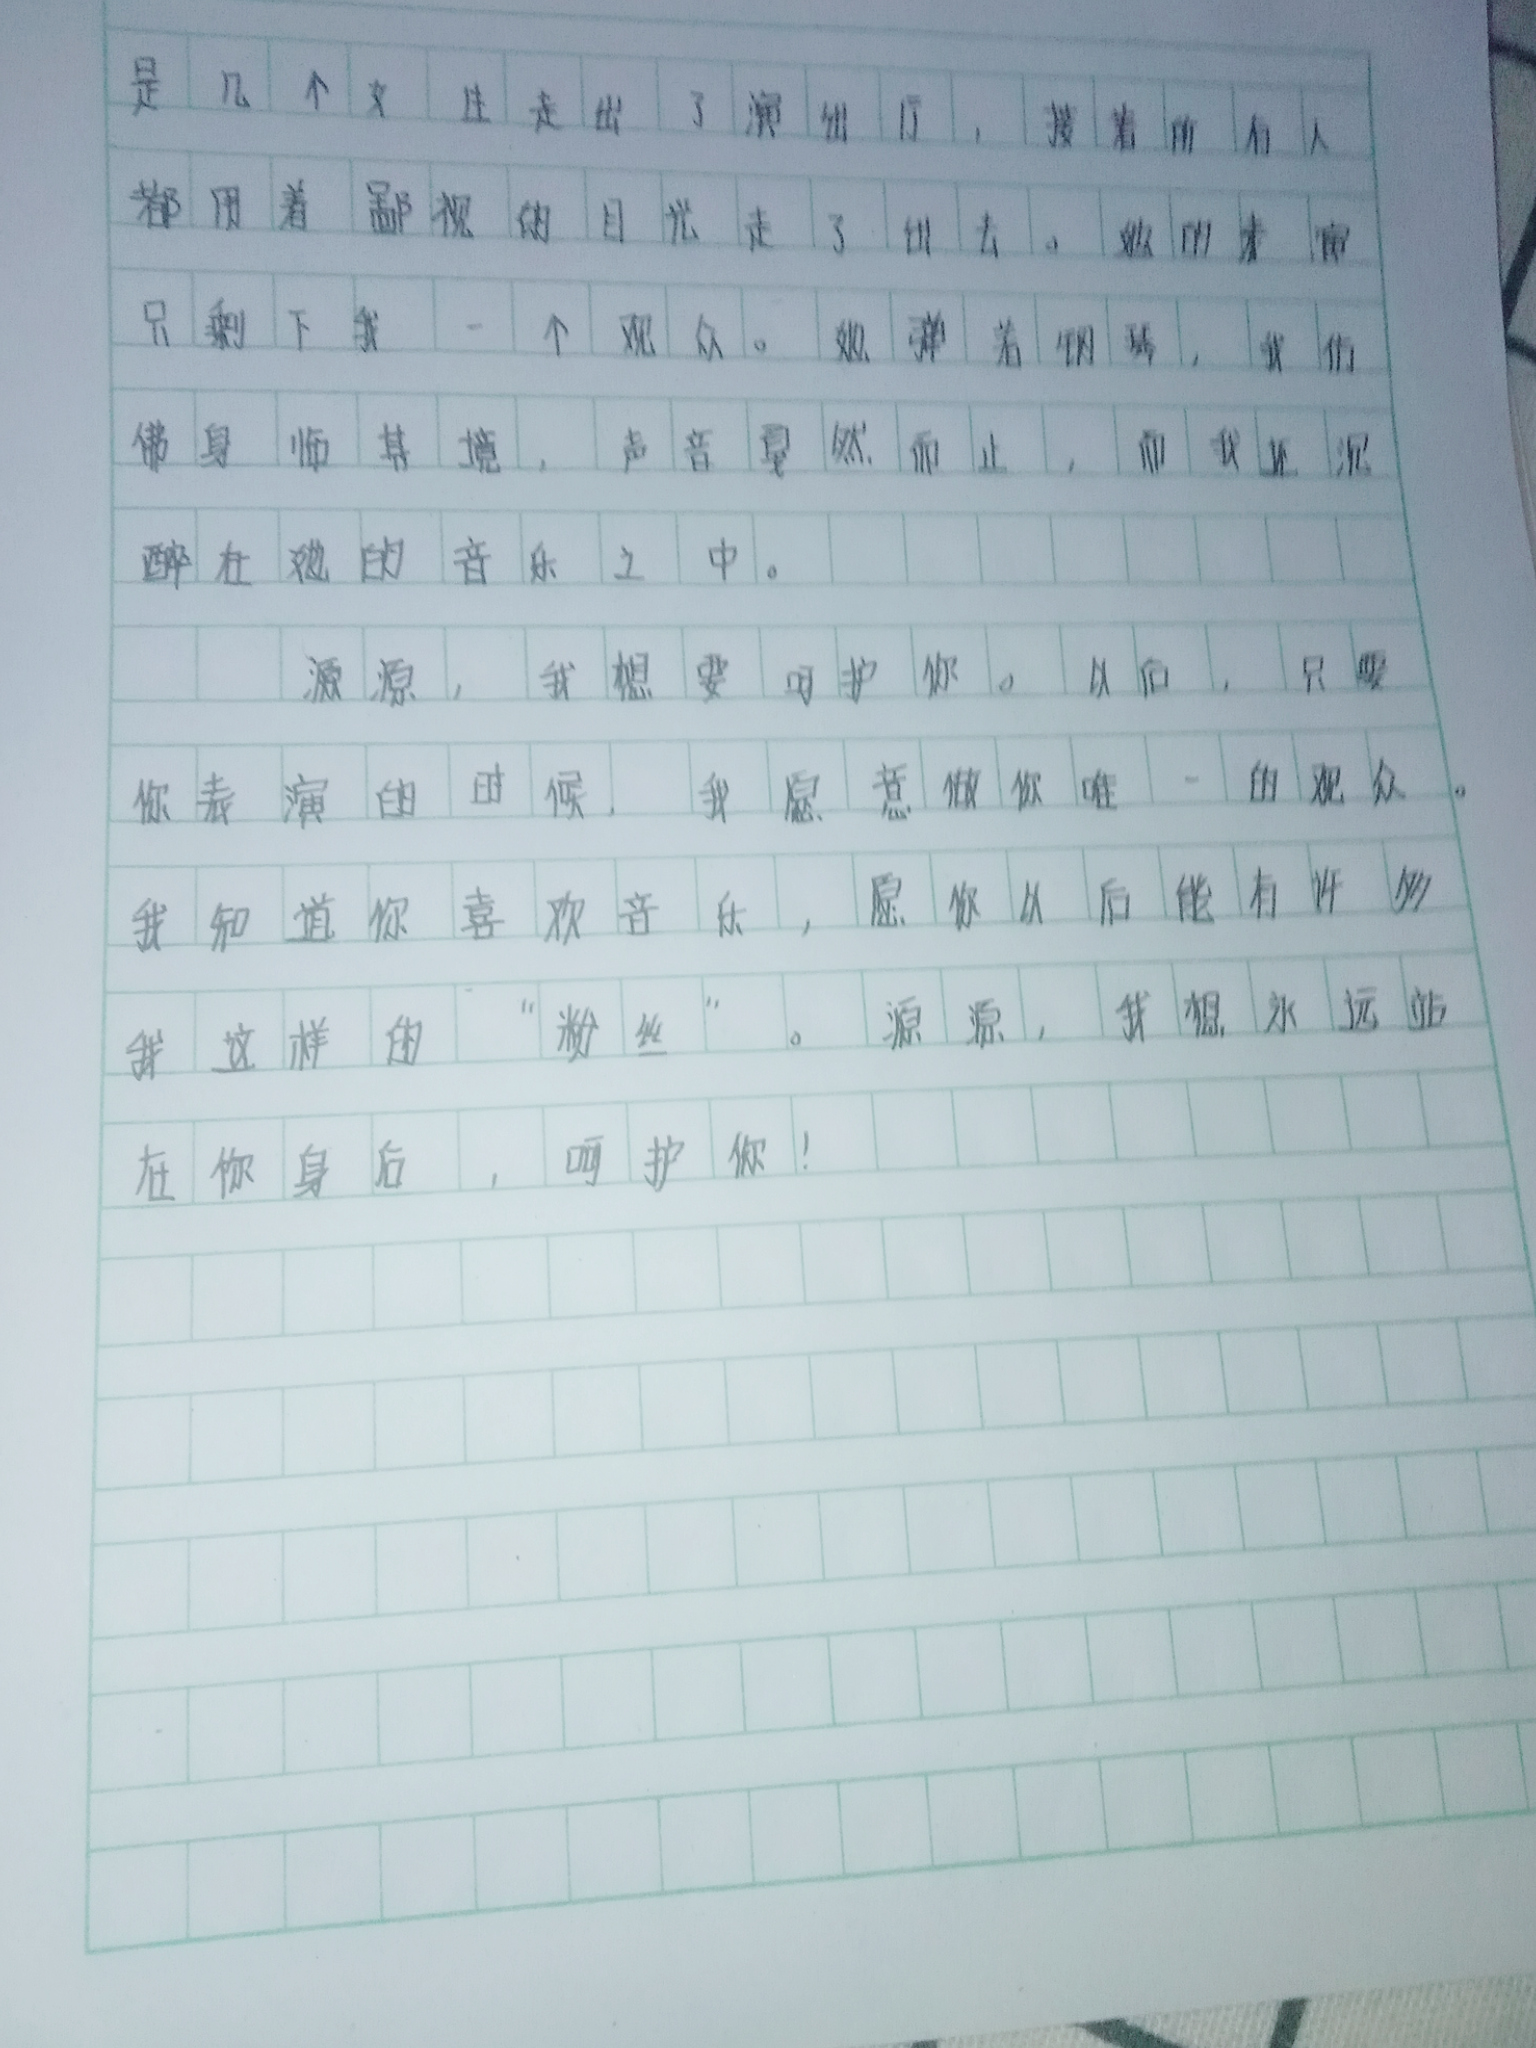 是几个女生走出了演出厅，接着所有人
都用着鄙视的目光走了出去。她的未面
只剩下我一个观众。她弹着钢琴，我仿
佛身临其境，声音戛然而止，而我还沉
醉在她的音乐之中。
源源，我想要呵护你。以后，只要
你表演的时候，我愿意做你唯一的观众。
我知道你喜欢音乐，愿你以后能有许多
我这样的“粉丝”。源源，我想永远站
在你身后，呵护你！